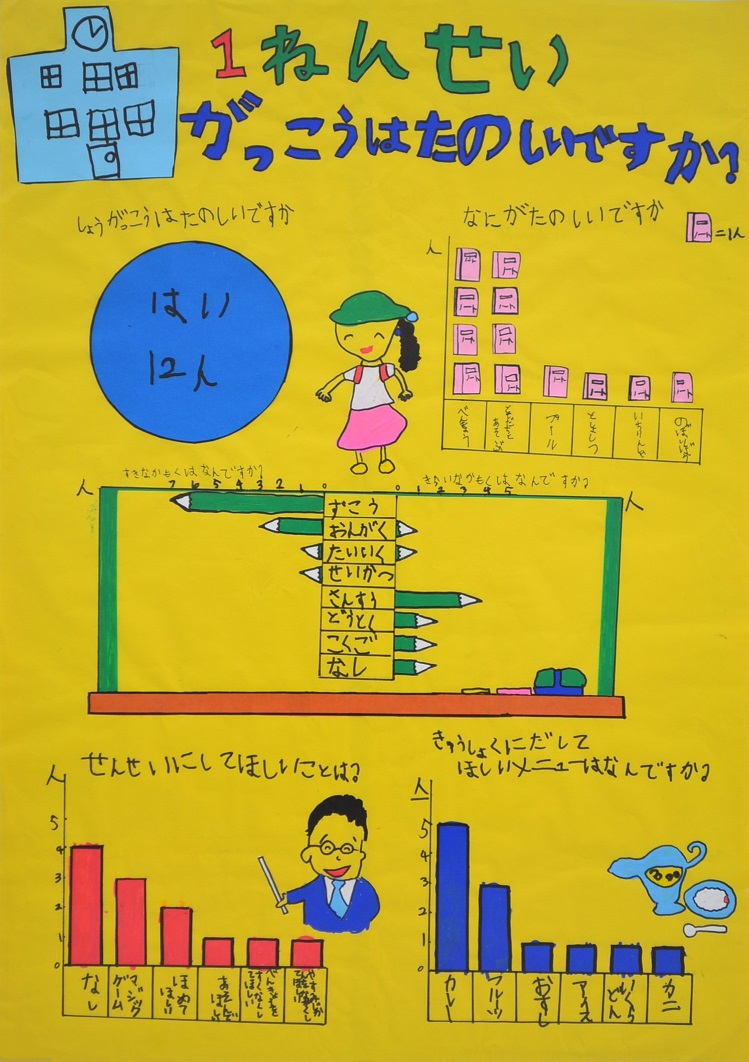 1ねんせい
がっこうはたのしいですか?
しょうがっこうはたのしいですか
はい
12人
なにがたのしいですか
=1人
人
ノート
ノート
ノート
ノート
ノート
ノート
ノート
ノート
ノート
ノート
ノート
ノート
ノート
べんきょう
プール
としょしつ
いちりんしゃ
のぼりぼう
すきなかもくはなんですか?
きらいなかもくはなんですか?
人 7 6 5 4 3 2 1 0
0 1 2 3 4 5 人
ずこう
おんがく
たいいく
せいかつ
さんすう
どうとく
こくご
なし
せんせいにしてほしいことは?
人
5
4
3
2
1
0
なし
マジックゲーム
ほめてほしい
あそんでほしい
べんきょうをすくなくしてほしい
きゅうしょくにだして
ほしいメニューはなんですか?
人
5
4
3
2
1
0
カレー
フルーツ
おすし
アイス
いくらどん
カニ